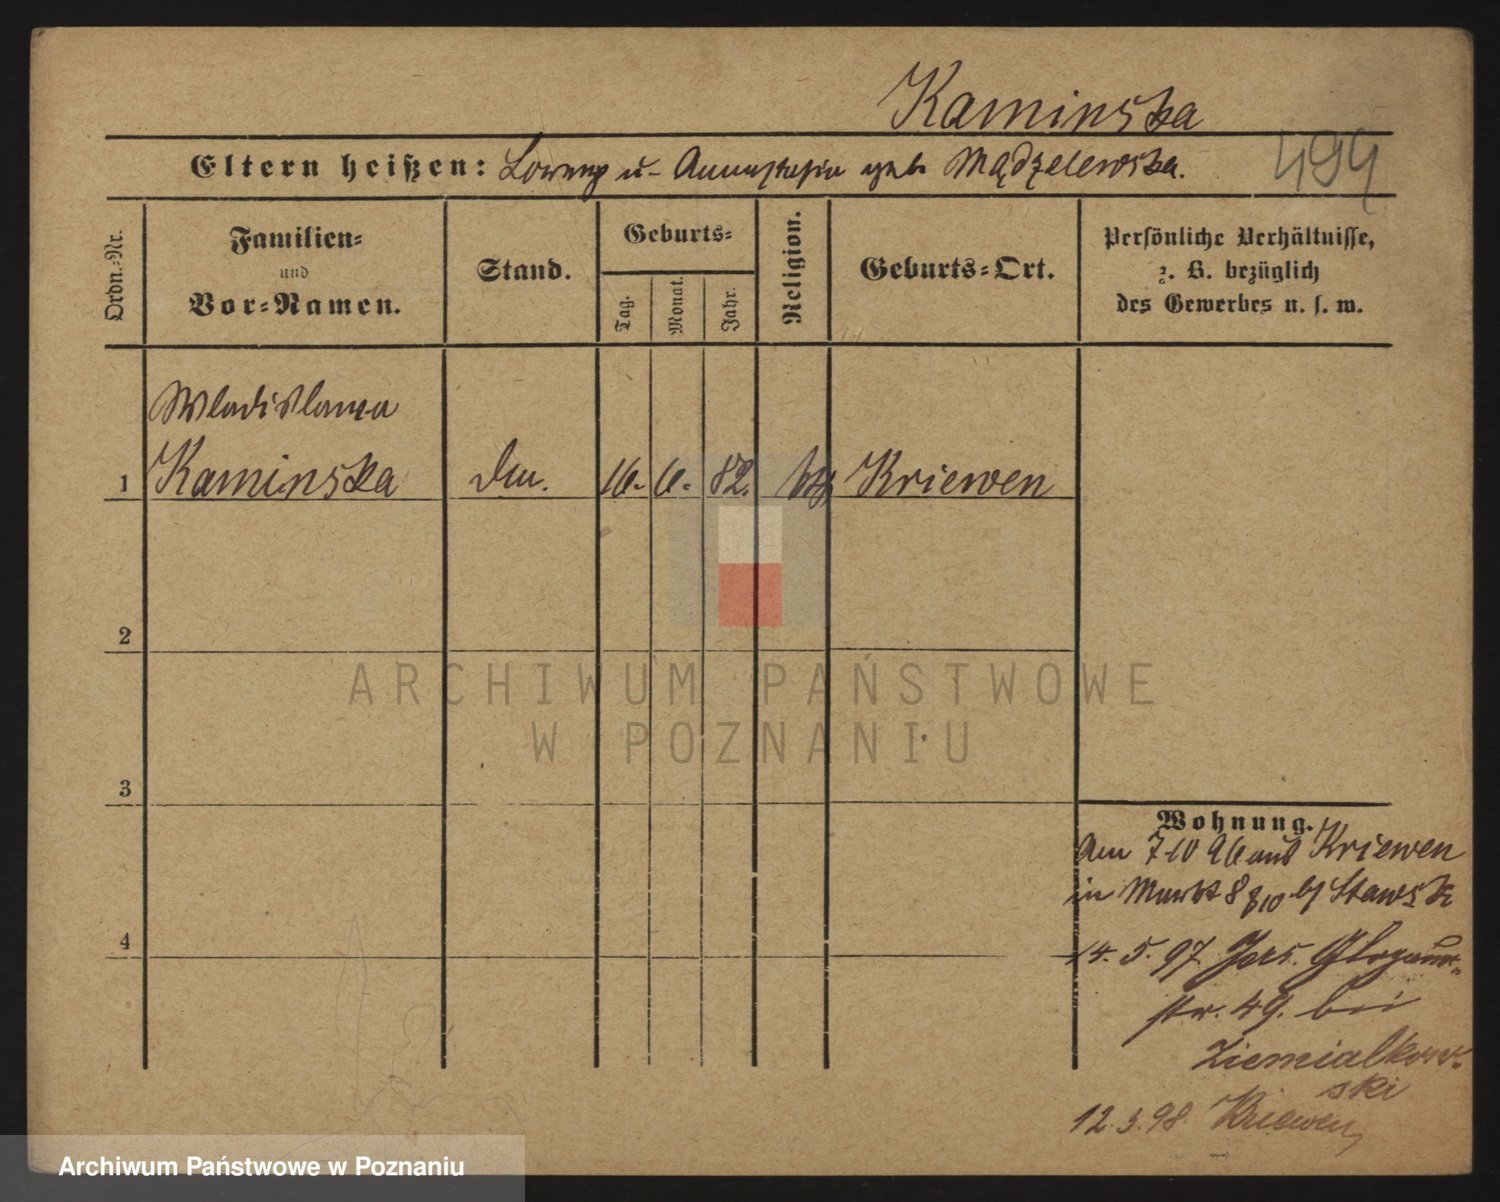 Kaminska
Eltern heißen: Lorenz u. Annastasia geb. Mądzelewska.
494
Ordn.-Nr.
Familien-
und
Vor-Namen.
Stand.
Geburts-
Tag.
Monat.
Jahr.
Religion.
Geburts-Ort.
Persönliche Verhältnisse,
z. B. bezüglich
des Gewerbes u. s. w.
Wladislawa
1 Kaminska 16. 6. 82. Kriewen
2
3
4
Wohnung.
Am 7 10 96 aus Kriewen
in Markt 8 bei Stawski
14. 5. 97. Jers. Glogauer-
str. 49. bei
Ziemialkow-
ski
12.3.98. Kriewen
ARCHIWUM PAŃSTWOWE
W POZNANIU
Archiwum Państwowe w Poznaniu